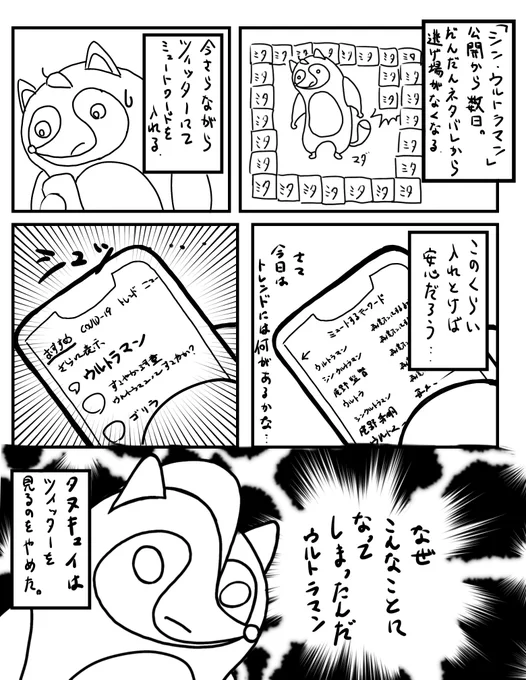 「シン・ウルトラマン」
公開から数日。
だんだんネタバレから
逃げ場がなくなる
ミタ ミタ ミタ ミタ ミタ ミタ
ミタ
ミタ
ミタ
ミタ
ミタ
ミタ
ミタ
ミタ
ミタ ミタ ミタ ミタ ミタ ミタ
今さらながら
ツイッターにて
ミュートワードを
入れる。
このくらい
入れとけば
安心だろう…
さて
今日は
トレンドには何があるかな…
ミュートするキーワード
ウルトラマン
シン ウルトラマン
ウルトラ
シンウルトラマン
おすすめ
COVID-19
トレンド
ニュー
ウルトラマン
ゴリラ
なぜ
こんなことに
なって
しまったんだ
ウルトラマン
タヌキュイは
ツイッターを
見るのをやめた。